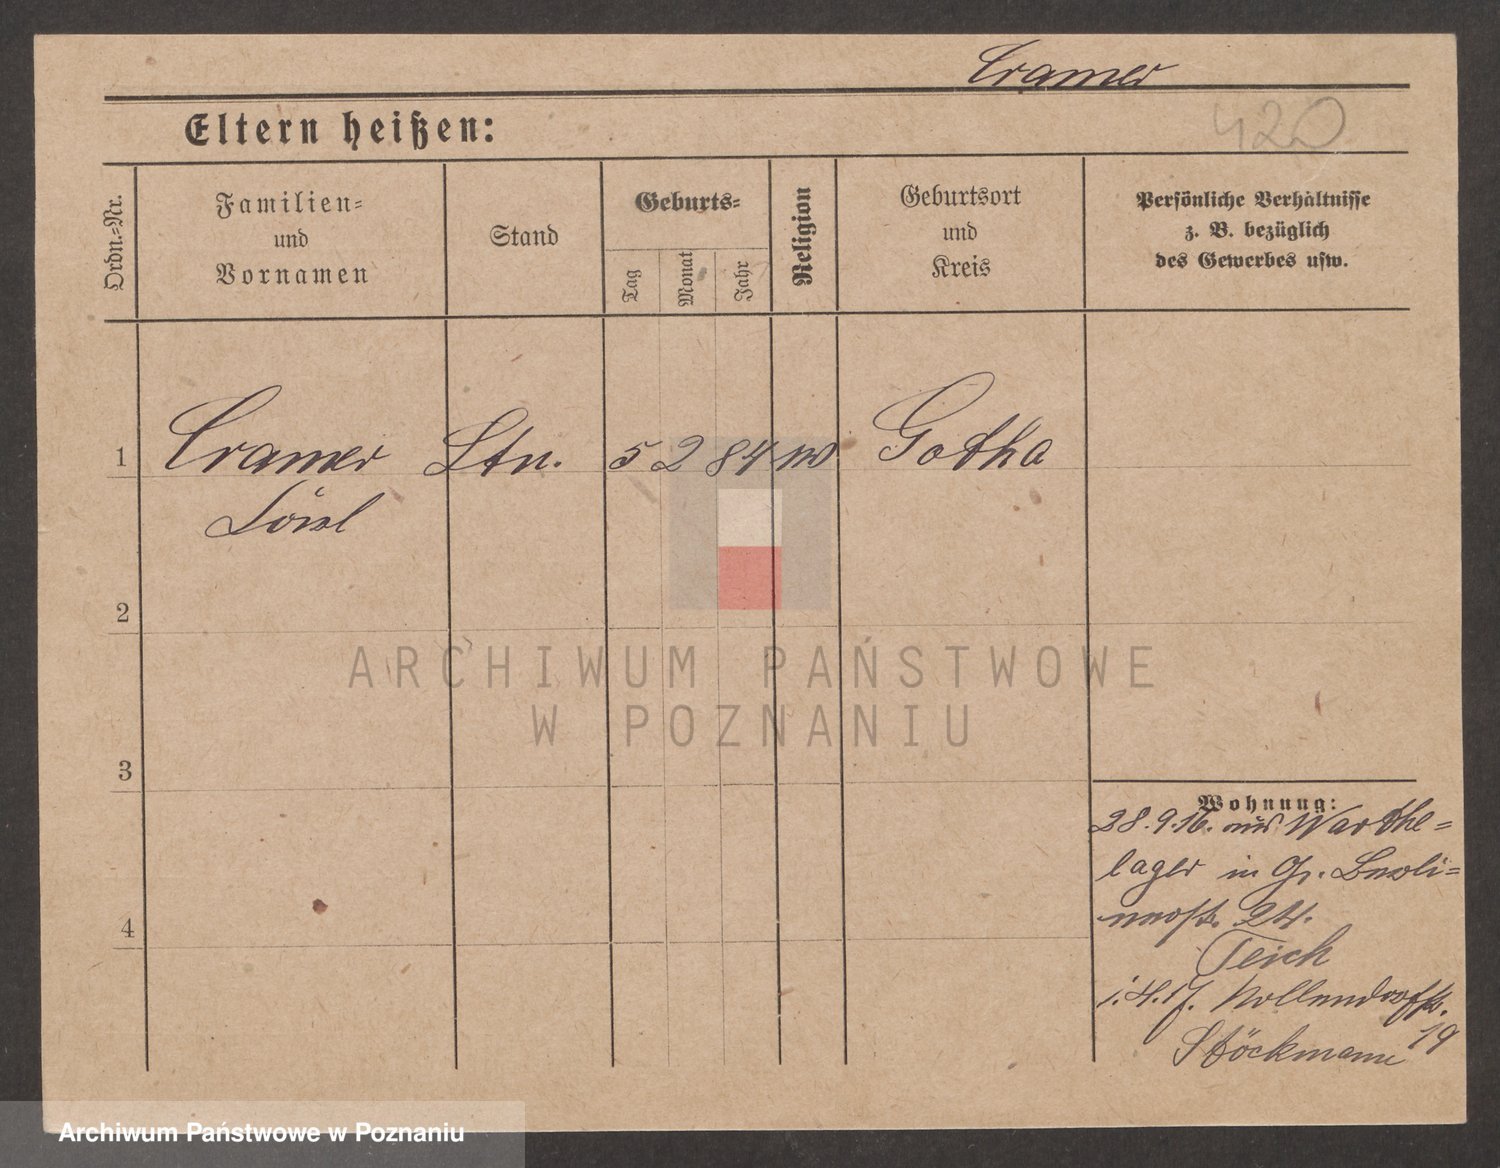 Cramer
420
Eltern heißen:
Ordn.=Nr.
Familien=
und
Vornamen
Stand
Geburts=
Tag
Monat
Jahr
Religion
Geburtsort
und
Kreis
Persönliche Verhältnisse
z. B. bezüglich
des Gewerbes usw.
1
Cramer Ltn. 5 2 84 Gotha
2
3
4
Wohnung:
28.9.16. aus Warthe=
lager in Gr. Berli=
nerstr. 24.
Teich
1.4.17. Nollendorfstr.
19
Stöckmann
ARCHIWUM PAŃSTWOWE
W POZNANIU
Archiwum Państwowe w Poznaniu